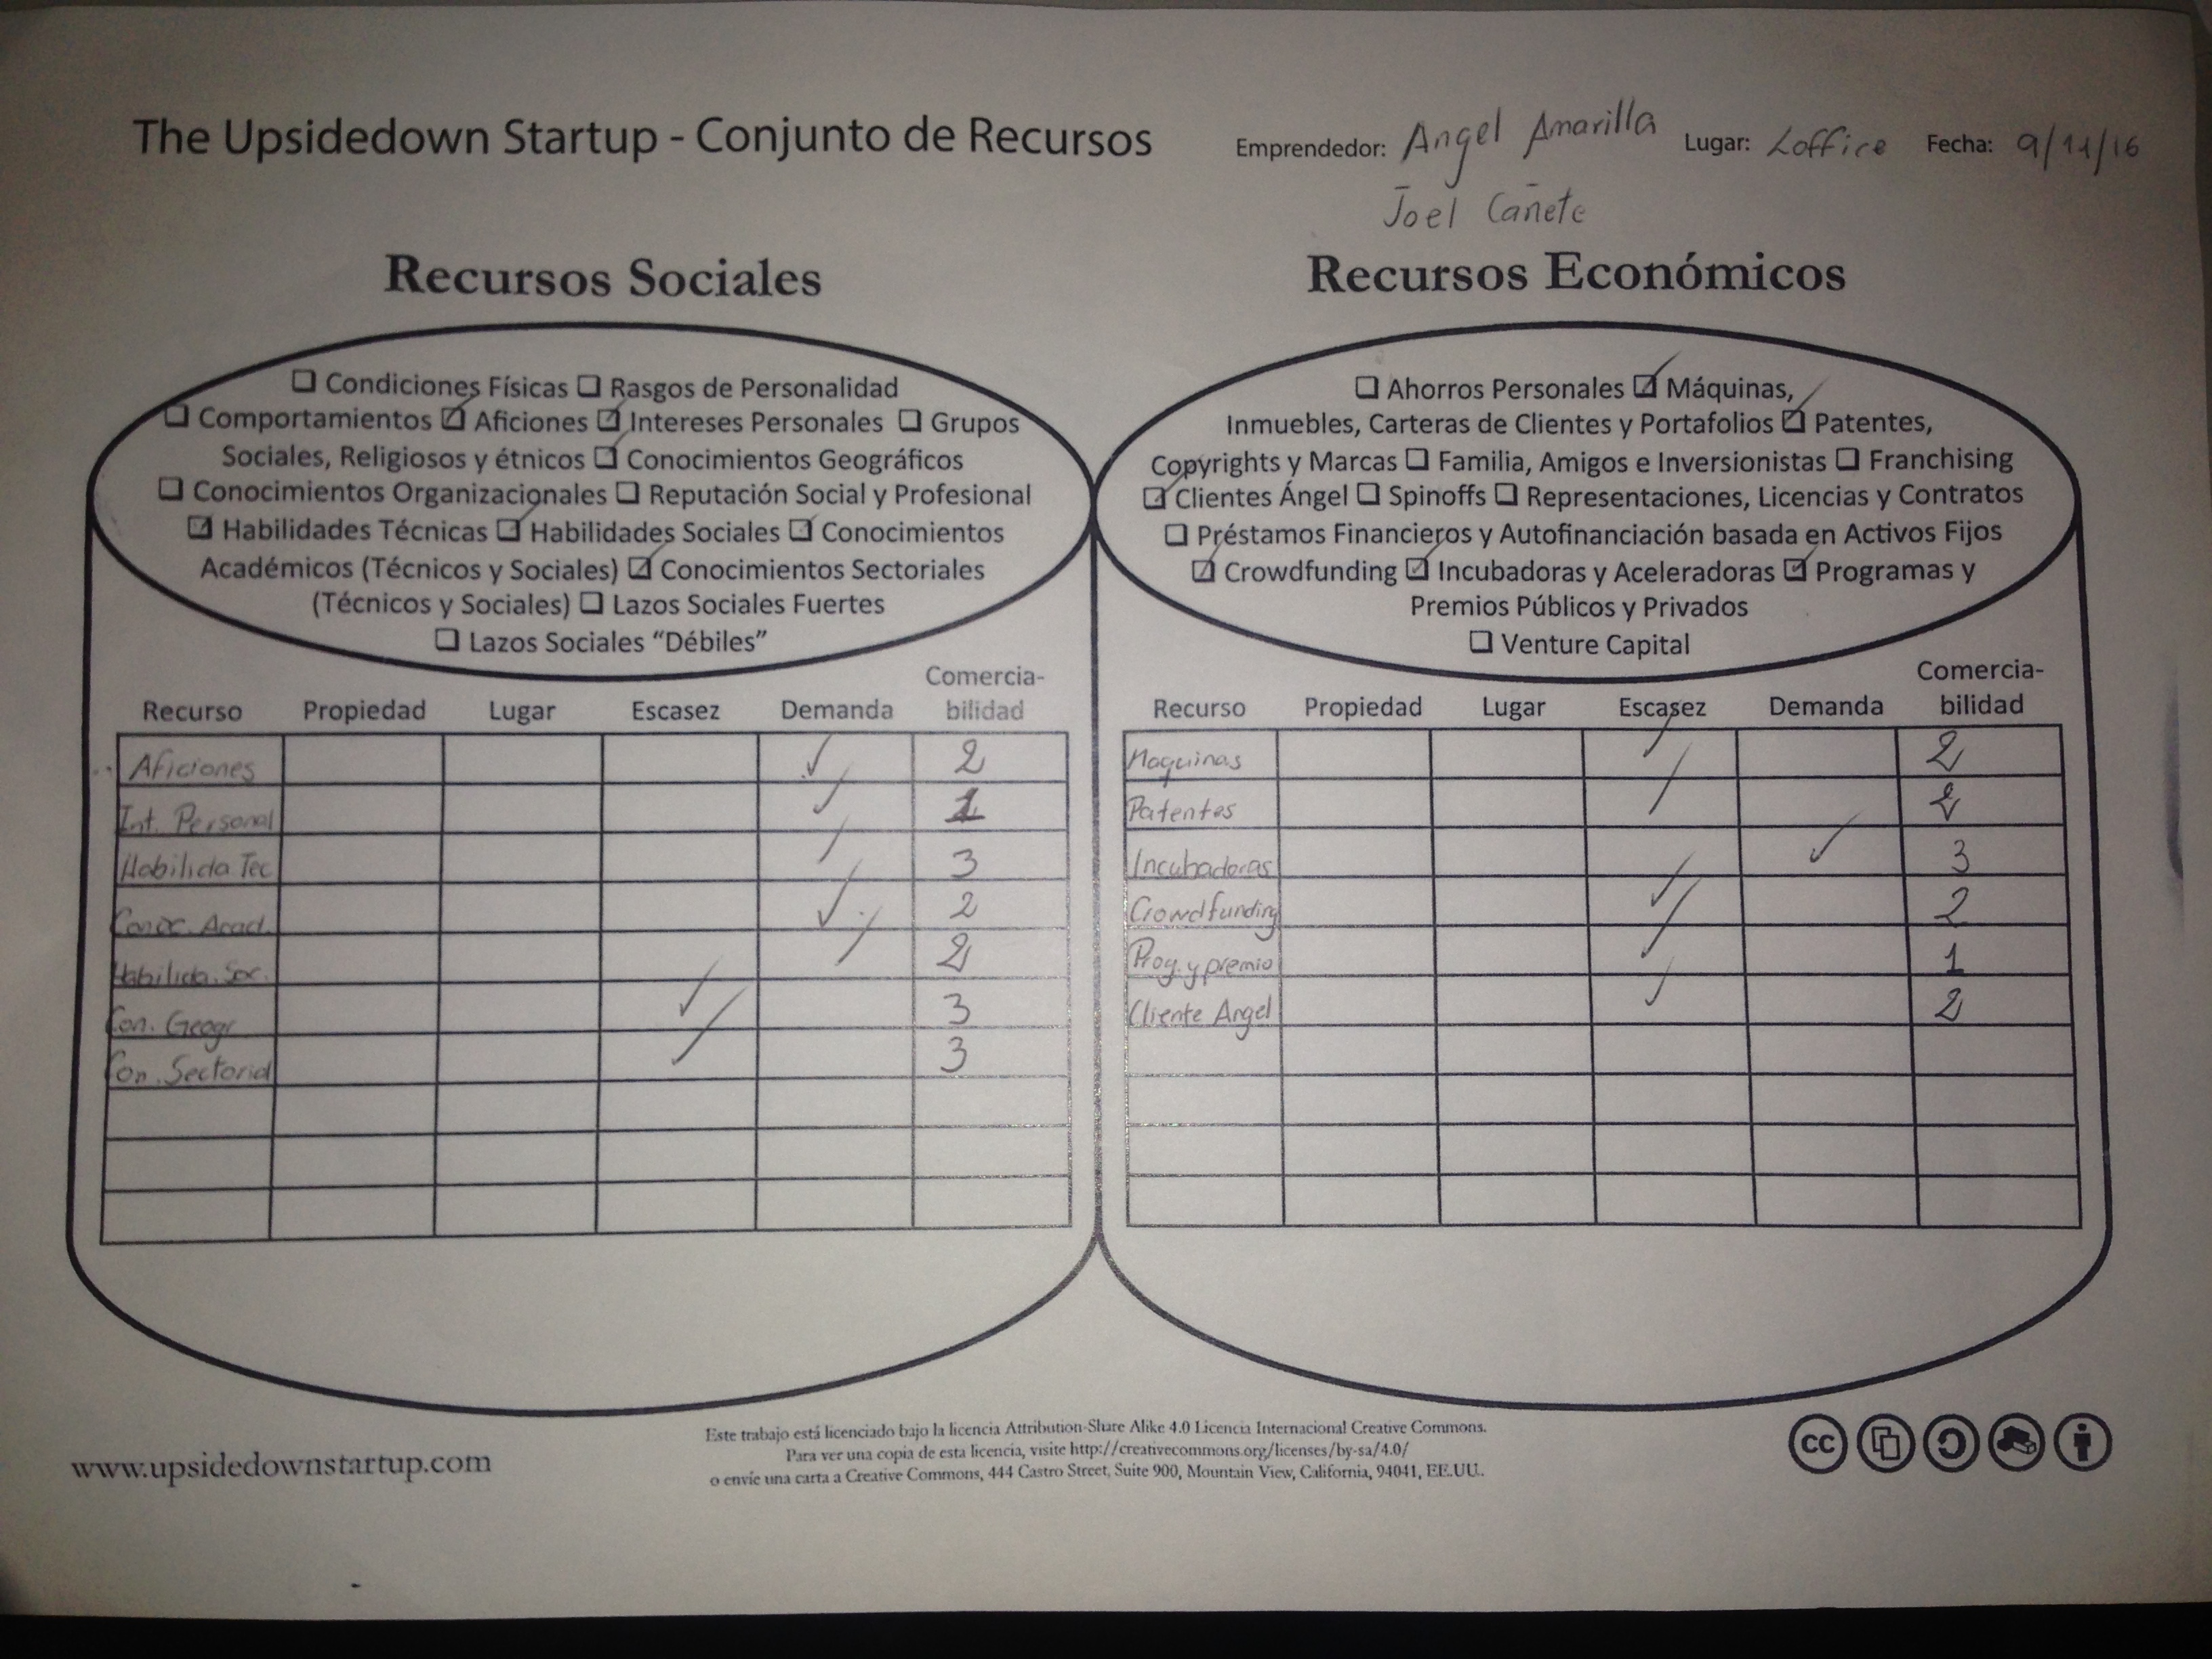 The Upsidedown Startup - Conjunto de Recursos Emprendedor: Angel Amarilla Lugar: Loffice Fecha: 9/11/16
Joel Cañete
Recursos Sociales
☐ Condiciones Físicas ☐ Rasgos de Personalidad
☐ Comportamientos ☑ Aficiones ☑ Intereses Personales ☐ Grupos
Sociales, Religiosos y étnicos ☑ Conocimientos Geográficos
☐ Conocimientos Organizacionales ☐ Reputación Social y Profesional
☑ Habilidades Técnicas ☑ Habilidades Sociales ☑ Conocimientos
Académicos (Técnicos y Sociales) ☑ Conocimientos Sectoriales
(Técnicos y Sociales) ☐ Lazos Sociales Fuertes
☐ Lazos Sociales “Débiles”
Recurso Propiedad Lugar Escasez Demanda Comercia-
bilidad
Aficiones ✓ 2
Int. Personal ✓ 1
Habilida Tec ✓ 3
Conoc. Acad. ✓ 2
Habilida. Soc. ✓ 2
Con. Geogr ✓ 3
Con. Sectorial ✓ 3
Recursos Económicos
☐ Ahorros Personales ☑ Máquinas,
Inmuebles, Carteras de Clientes y Portafolios ☑ Patentes,
Copyrights y Marcas ☐ Familia, Amigos e Inversionistas ☐ Franchising
☑ Clientes Ángel ☐ Spinoffs ☐ Representaciones, Licencias y Contratos
☐ Préstamos Financieros y Autofinanciación basada en Activos Fijos
☑ Crowdfunding ☑ Incubadoras y Aceleradoras ☑ Programas y
Premios Públicos y Privados
☐ Venture Capital
Recurso Propiedad Lugar Escasez Demanda Comercia-
bilidad
Maquinas ✓ 2
Patentes ✓ 2
Incubadoras ✓ 3
Crowdfunding ✓ 2
Prog. y premio ✓ 1
Cliente Angel ✓ 2
www.upsidedownstartup.com
Este trabajo está licenciado bajo la licencia Attribution-Share Alike 4.0 Licencia Internacional Creative Commons.
Para ver una copia de esta licencia, visite http://creativecommons.org/licenses/by-sa/4.0/
o envíe una carta a Creative Commons, 444 Castro Street, Suite 900, Mountain View, California, 94041, EE.UU.
cc